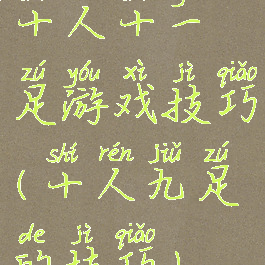 十人十一
zú yóu xì jì qiǎo
足游戏技巧
shí rén jiǔ zú
(十人九足
de jì qiǎo
的技巧)